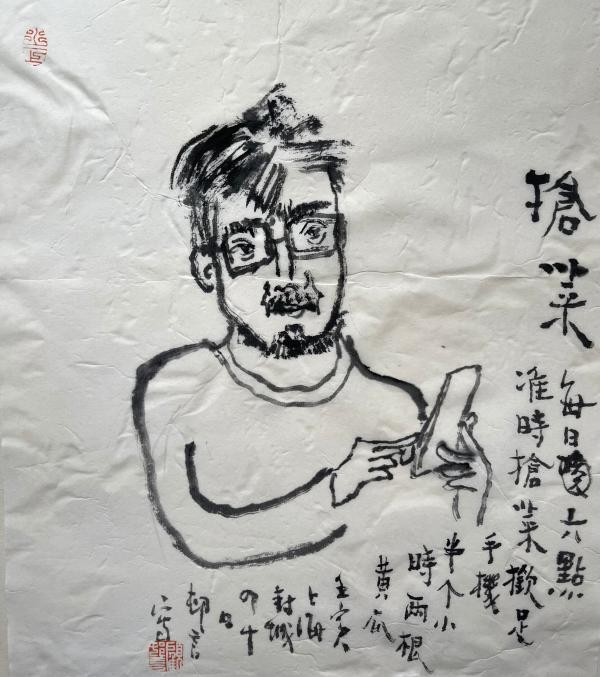 搶菜
每日六點
准時搶菜足
手機
半个小
時兩根
黃瓜
壬寅
上海
封城
四十
日
邨言
写